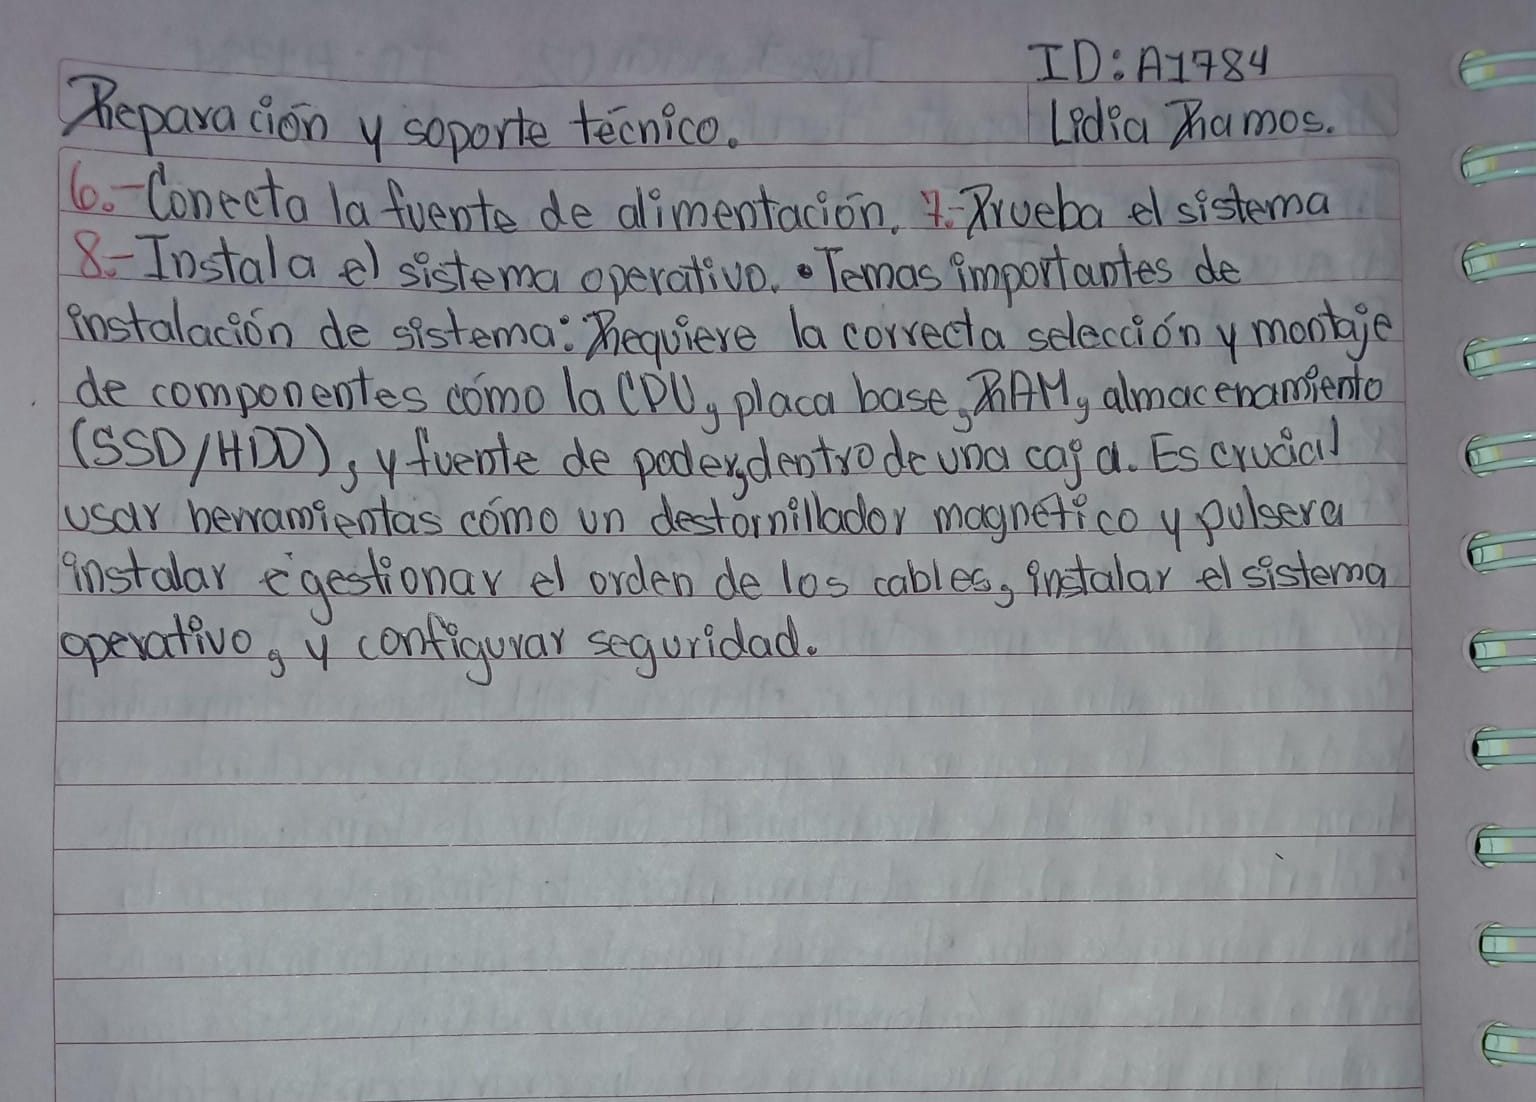 ID: A1784
Reparación y soporte técnico.
Lidia Ramos.
6.- Conecta la fuente de alimentación. 7.- Prueba el sistema
8.- Instala el sistema operativo. • Temas importantes de
instalación de sistema: Requiere la correcta selección y montaje
de componentes cómo la CPU, placa base, RAM, almacenamiento
(SSD/HDD), y fuente de poder, dentro de una caja. Es crucial
usar herramientas cómo un destornillador magnético y pulsera
instalar e gestionar el orden de los cables, instalar el sistema
operativo, y configurar seguridad.